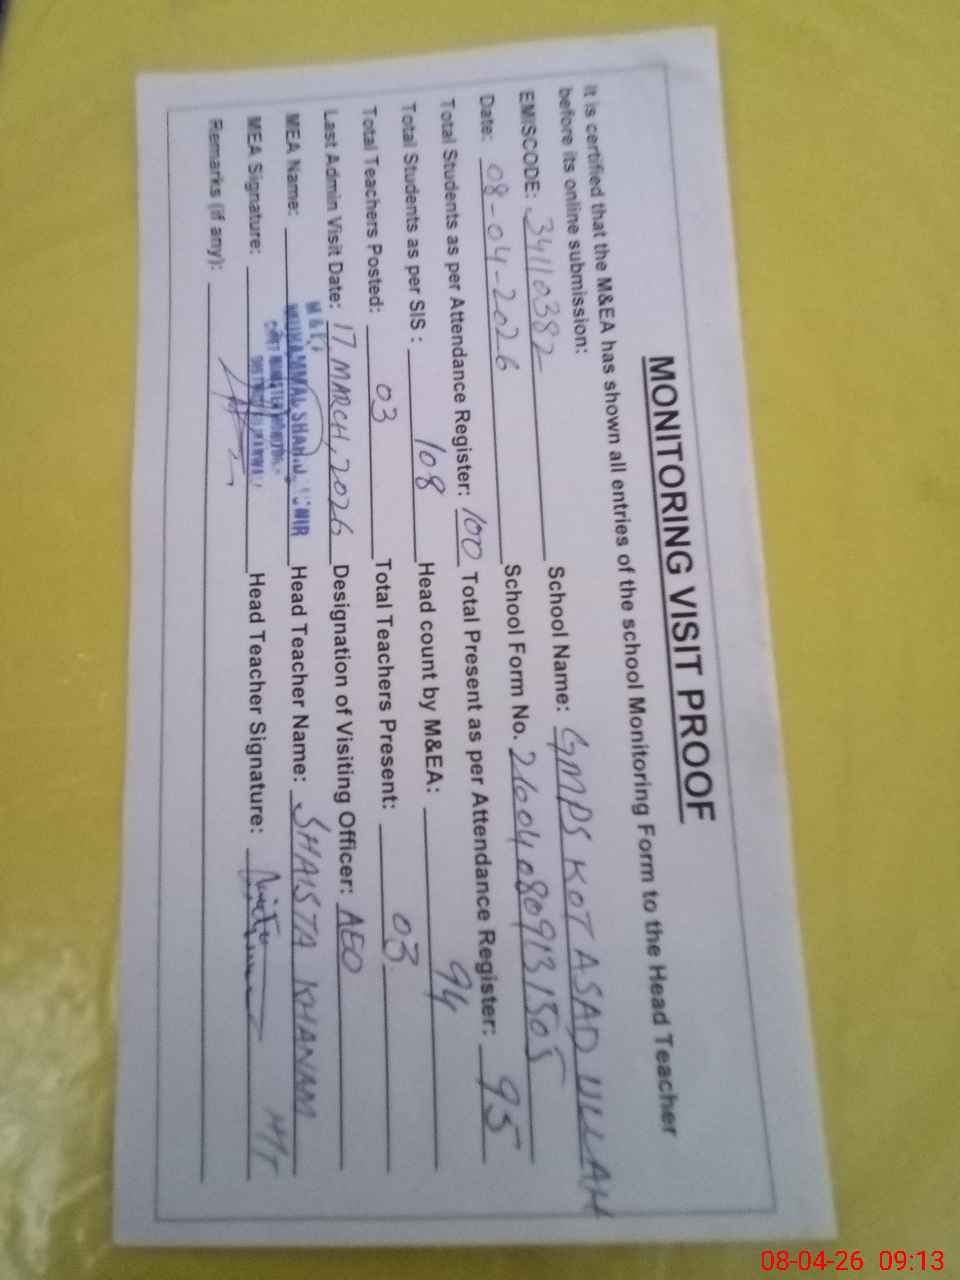 MONITORING VISIT PROOF
It is certified that the M&EA has shown all entries of the school Monitoring Form to the Head Teacher
before its online submission:
EMISCODE: 34110382 School Name: GMPS KOT ASAD ULLAH
Date: 08-04-2026 School Form No. 26040809131505
Total Students as per Attendance Register: 100 Total Present as per Attendance Register: 95
Total Students as per SIS: 108 Head count by M&EA: 94
Total Teachers Posted: 03 Total Teachers Present: 03
Last Admin Visit Date: 17 MARCH, 2026 Designation of Visiting Officer: AEO
MEA Name: Head Teacher Name: SHAISTA KHANAM
MEA Signature: Head Teacher Signature:
Remarks (if any):
08-04-26 09:13